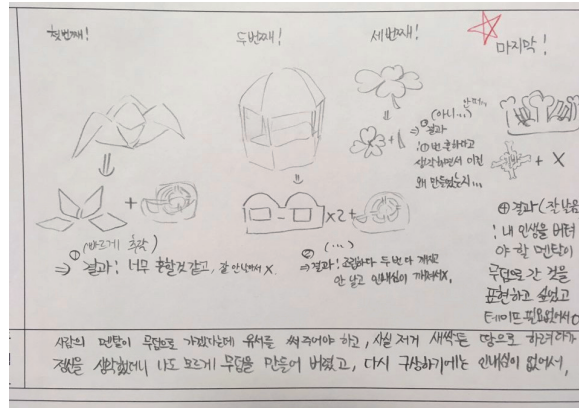 첫번째!
두번째!
세번째!
마지막!
(바르게 추락)
① ⇒ 결과! 너무 흔할것 같고, 잘 안 날아서 X.
+
x2 +
② (...)
⇒ 결과! 조립하다 두번 다 깨지고
안 날고 인내심이 까져서 X,
(아니...)
⇒ 결과
! ①번 흔하다고
생각하면서 이런
왜 만들었는지...
+ X
④ 결과 (잘 날음
: 내 인생을 버텨
야 할 멘탈이
무덤으로 간 것을
표현하고 싶었고
테이프 필요없어서 O
사람의 멘탈이 무덤으로 가겠다는데 유서를 써 주어야 하고, 사실 저거 새싹튼 땅으로 하려다가
정신을 생각했더니 나도 모르게 무덤을 만들어 버렸고, 다시 구상하기에는 인내심이 없어서,